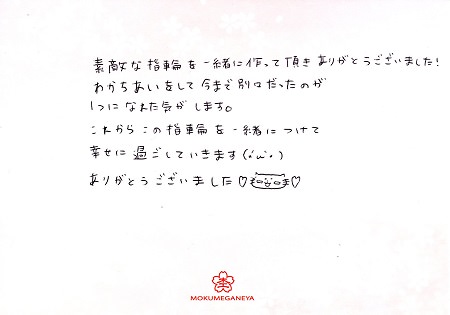 素敵な指輪を一緒に作って頂きありがとうございました!
わかちあいをして今まで別々だったのが
1つになれた気がします。
これからこの指輪を一緒につけて
幸せに過ごしていきます(・ω・)
ありがとうございました♡♡
MOKUMEGANEYA